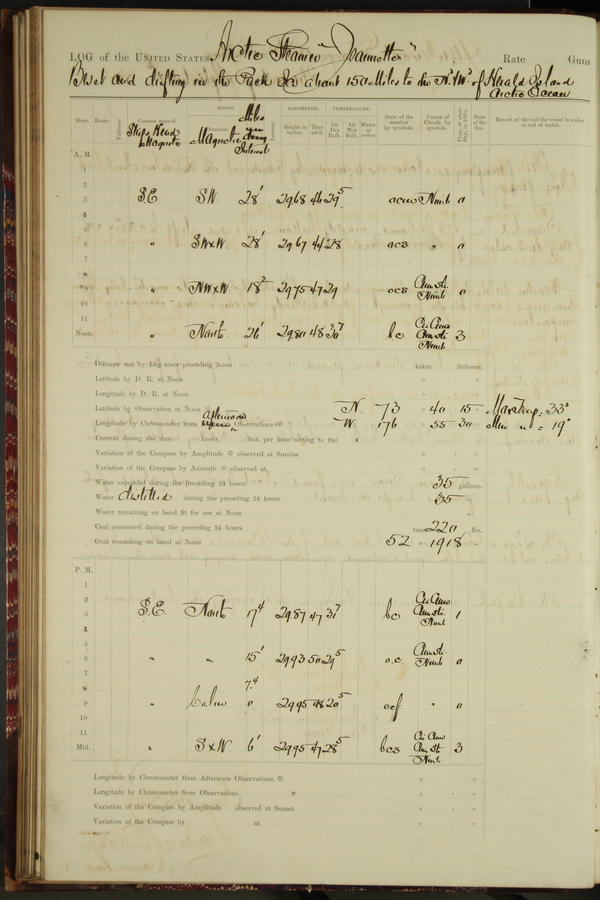 LOG of the United States Arctic Steamer "Jeannette" Rate Guns
Beset and drifting in the Pack Ice about 150 Miles to the N & Wd of Herald Island
Arctic Ocean
Hour. Knots. Fathoms. Courses steered. Ships Head Magnetic WINDS. Direction. Magnetic Miles during Interval Leeway. BAROMETER. Height in inches. Ther. att'd. TEMPERATURE. Air Dry Bulb. Air Wet Bulb. Water at surface. State of the weather by symbols. Forms of Clouds by symbols. Prop. of clear sky, in 10ths. State of the Sea. Record of the sail the vessel is under at end of watch.
A. M.
1
2
3 SE SW 28¹ 29 68 46 29⁵ Nimb 0
4
5
6 " SWxW 28¹ 29 67 44 28 ocs " 0
7
8
9 " NWxW 18² 29 75 47 29 ocs Cum sti Nimb 0
10
11
Noon. " North 26¹ 29 80 48 30⁷ bc Cir Cum Cum sti Nimb 3
Distance run by Log since preceding Noon knots fathoms.
Latitude by D. R. at Noon
Longitude by D. R. at Noon
Latitude by Observation at Noon N. 73 40 15 Max temp = 33°
Longitude by Chronometer from Afternoon Observations W 176 55 30 Min " = 19°
Current during the time knots fms. per hour setting to the
Variation of the Compass by Amplitude observed at Sunrise
Variation of the Compass by Azimuth observed at
Water expended during the preceding 24 hours 35 gallons.
Water distilled during the preceding 24 hours 35 "
Water remaining on hand fit for use at Noon
Coal consumed during the preceding 24 hours tons 220 lbs.
Coal remaining on hand at Noon 52 " 1918 "
P. M.
1
2
3 S.E. North 17⁴ 29.87 47 31⁷ bc Cir Cum Cum sti. Nimb 1
4
5
6 " " 15¹ 29 93 50 29⁵ o.c. Cum sti Nimb 0
7
8 7.4
9 " Calm 0 29 95 48 20⁵ ocf " 0
10
11
Mid. " SxW 6¹ 29 95 47 28⁵ bcs Cir Cum Cum St Nimb 3
Longitude by Chronometer from Afternoon Observations
Longitude by Chronometer from Observations
Variation of the Compass by Amplitude observed at Sunset
Variation of the Compass by at